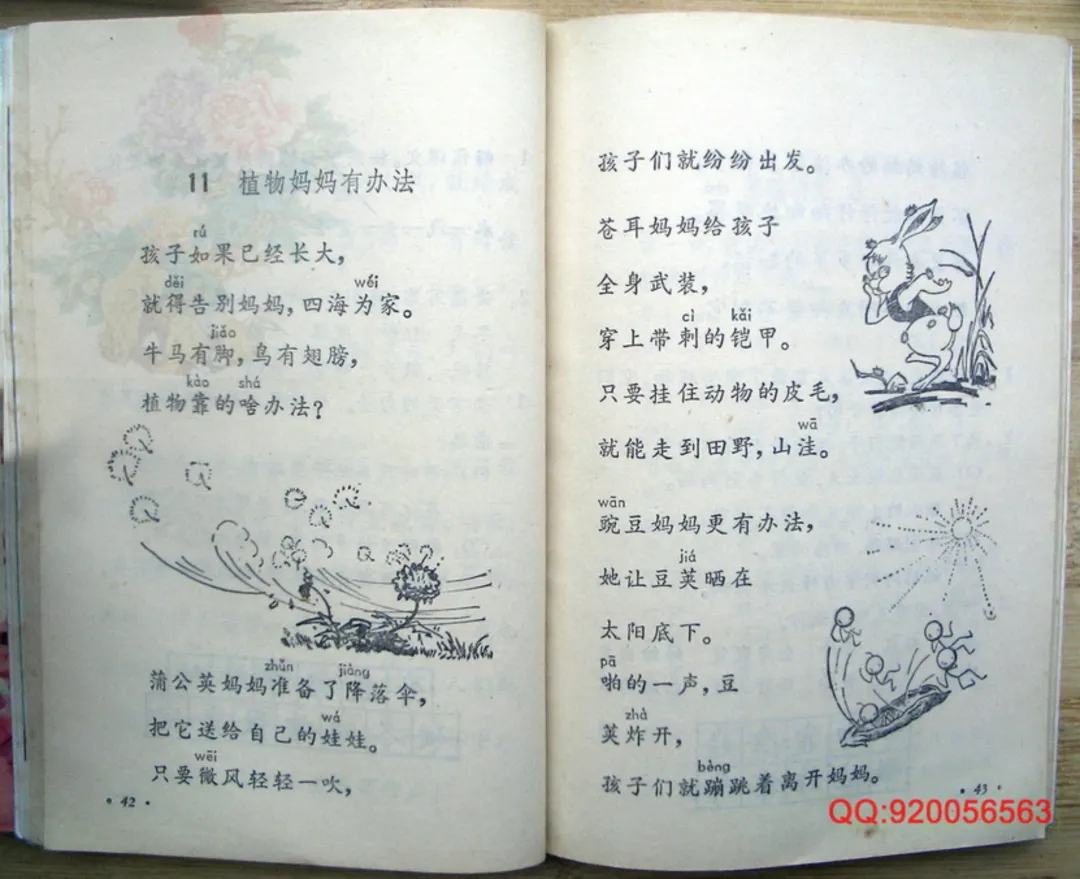 11 植物妈妈有办法
rú
孩子如果已经长大,
děi wéi
就得告别妈妈,四海为家。
jiǎo
牛马有脚,鸟有翅膀,
kào shá
植物靠的啥办法?
zhǔn jiàng
蒲公英妈妈准备了降落伞,
wá
把它送给自己的娃娃。
wēi
只要微风轻轻一吹,
• 42 •
孩子们就纷纷出发。
苍耳妈妈给孩子
全身武装,
cì kǎi
穿上带刺的铠甲。
只要挂住动物的皮毛,
wā
就能走到田野,山洼。
wān
豌豆妈妈更有办法,
jiá
她让豆荚晒在
太阳底下。
pā
啪的一声,豆
zhà
荚炸开,
bèng
孩子们就蹦跳着离开妈妈。
• 43 •
QQ:920056563